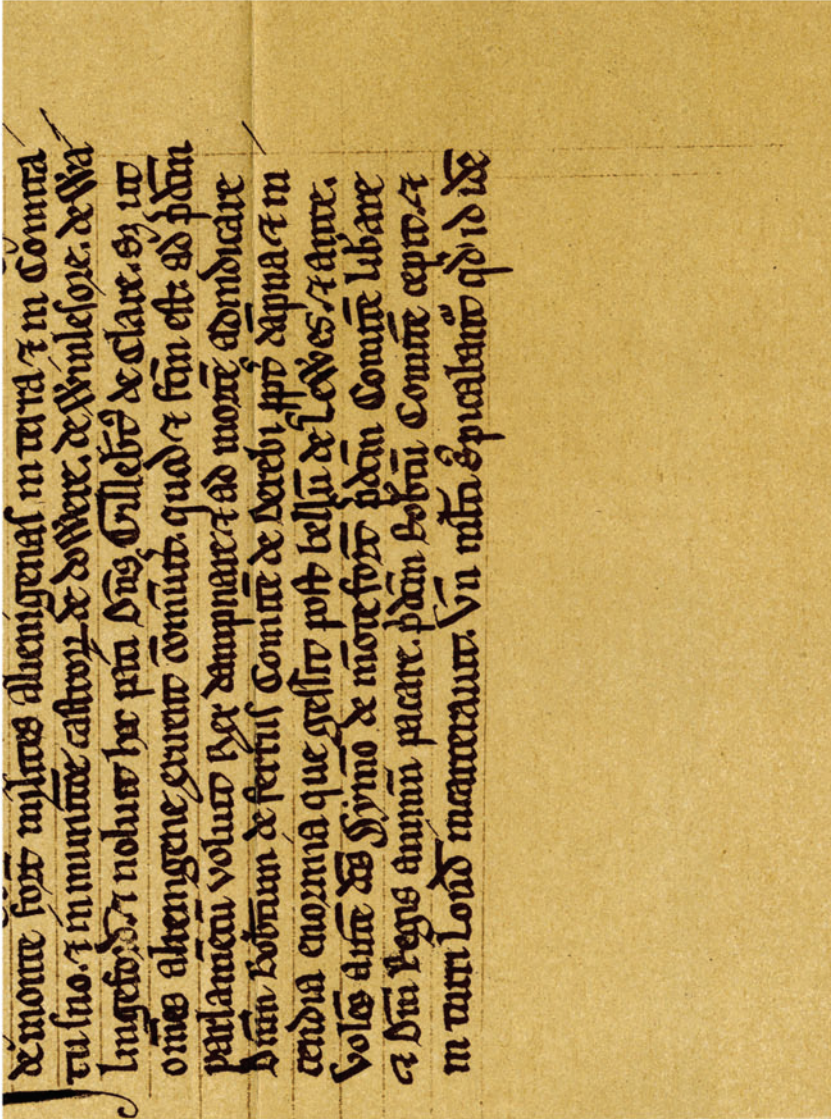 de monte fort̄ milites alienigenas in terra ⁊ in Comita
tu suo. ⁊ in munitōe castroꝝ de dowere. de Windesore. de Wa
lingeford. ⁊ noluit hec pati Dn̄s Gillebt̄ de Clare. sꝫ ut̄
om̄es alienigene exirent cōmunit̄. quod ⁊ fc̄m est. ad p̄dc̄m
parlamētū voluit Rex dampnare ⁊ ad mortē adiudicare
Dn̄m Robtum de ferrus Comitē de Derebi ppt̄ dāpna ⁊ in
cendia enormia que gessit post bellū de Lewes ⁊ ante.
Volēs autē dn̄s Symō de mōte fort̄ p̄dc̄m Comitē lib̄are
⁊ Dn̄i Regis animū pacare. p̄dc̄m Robt̄ū Comitē cepit ⁊
in turri Lond̄ incarcerauit. Vn̄ multi p̄bant qd̄ id id̄e